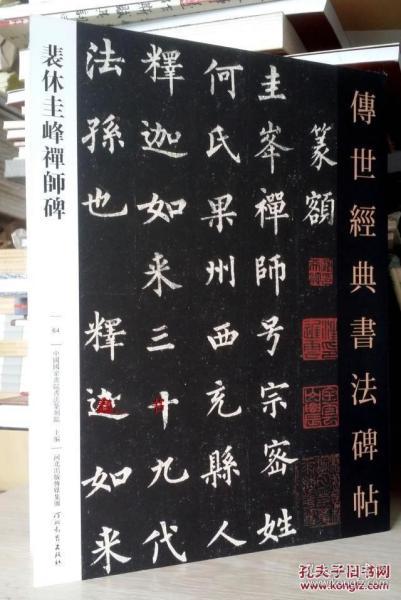 傳世經典書法碑帖
篆額
圭峯禪師号宗密姓
何氏果州西充縣人
釋迦如来三十九代
法孫也 釋迦如来
裴休圭峰禪師碑
64
中國國家畫院書法篆刻院 主編
河北出版傳媒集團
河北教育出版社
孔夫子旧书网